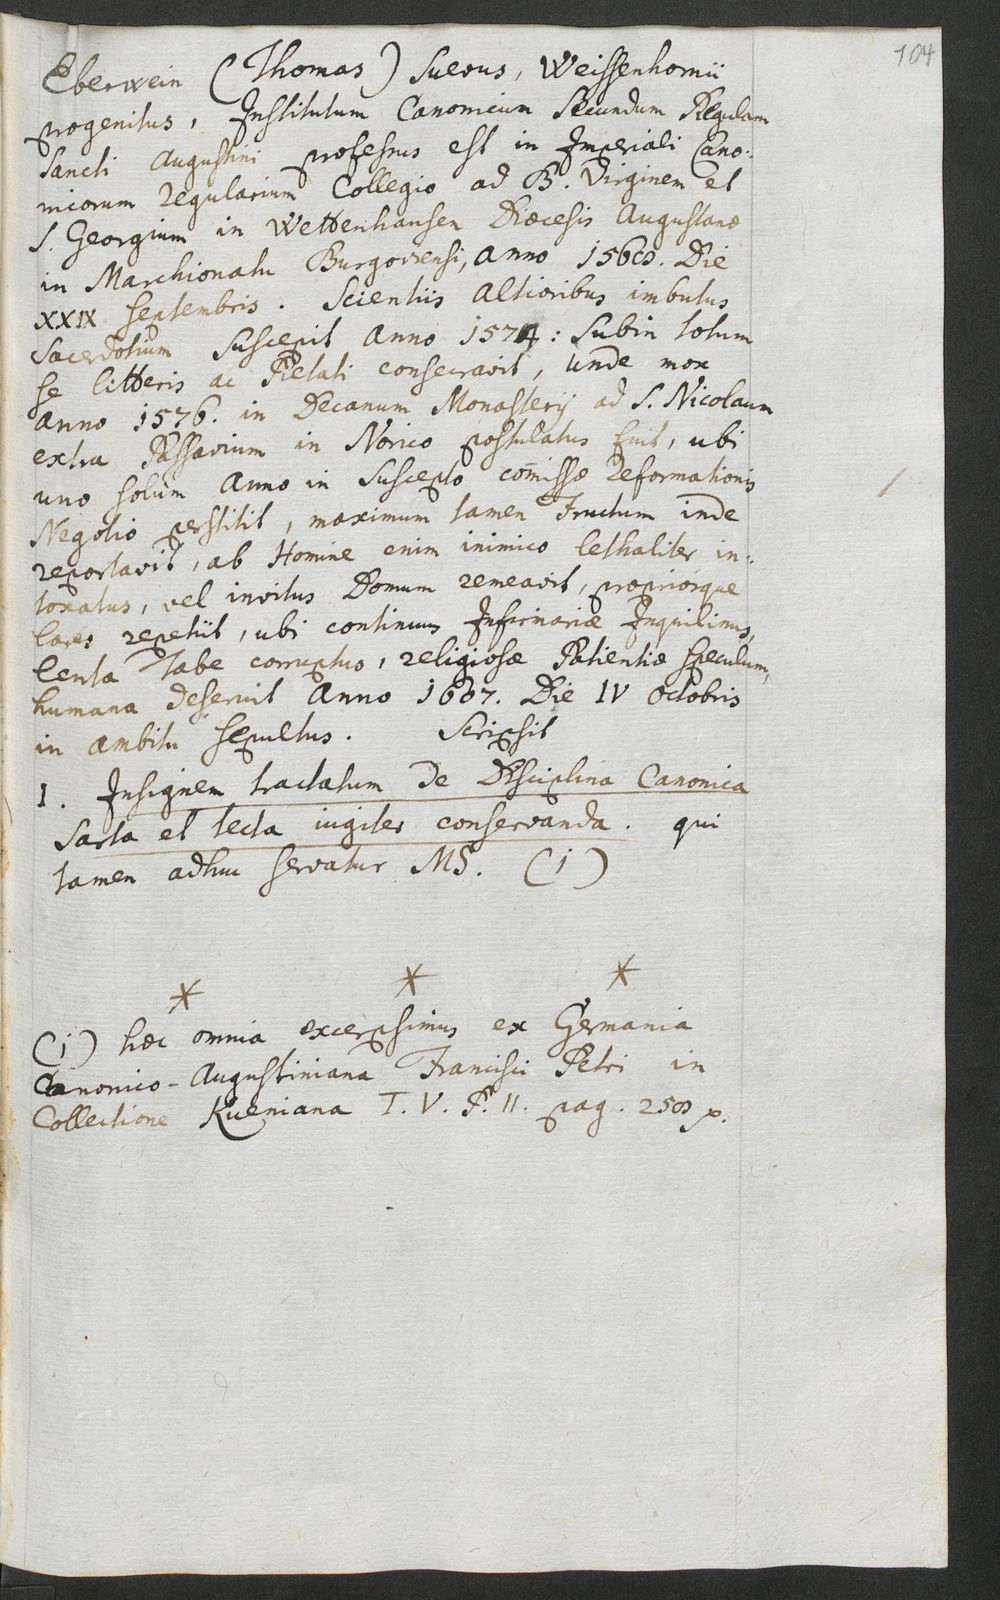 104
Eberwein (Thomas) Suevus, Weissenhornii
progenitus, Institutum Canonicum Secundum Regulam
Sancti Augustini professus est in Imperiali Cano-
nicorum regularium Collegio ad B. Virginem et
S. Georgium in Wettenhausen Dioecesis Augustanae
in Marchionatu Burgoviensi, Anno 1568. Die
XXIX Septembris. Scientiis Altioribus imbutus
Sacerdotium Suscepit Anno 1574: Subin totum
se litteris ac Pietati consecravit, unde mox
Anno 1576. in Decanum Monasterij ad S. Nicolaum
extra Passavium in Norico postulatus fuit, ubi
uno solùm Anno in Suscepto com̄issae reformationis
Negotio perstitit, maximum tamen Fructum inde
reportavit, ab Homine enim inimico lethaliter in-
toxatus, vel invitus Domum remeavit, propriosque
lares repetiit, ubi continuus Infirmariae Inquilinus,
lenta Tabe corruptus, religiosae Patientiae speculum,
humana deseruit Anno 1607. Die IV Octobris
in ambitu sepultus. Scripsit
1. Insignem tractatum de Disciplina Canonica
Sarta et tecta iugiter conservanda. qui
tamen adhuc servatur MS. (i)
* * *
(i) haec omnia excerpsimus ex Germania
Canonico-Augustiniana Francisci Petri in
Collectione Kueniana T. V. P. II. pag. 258